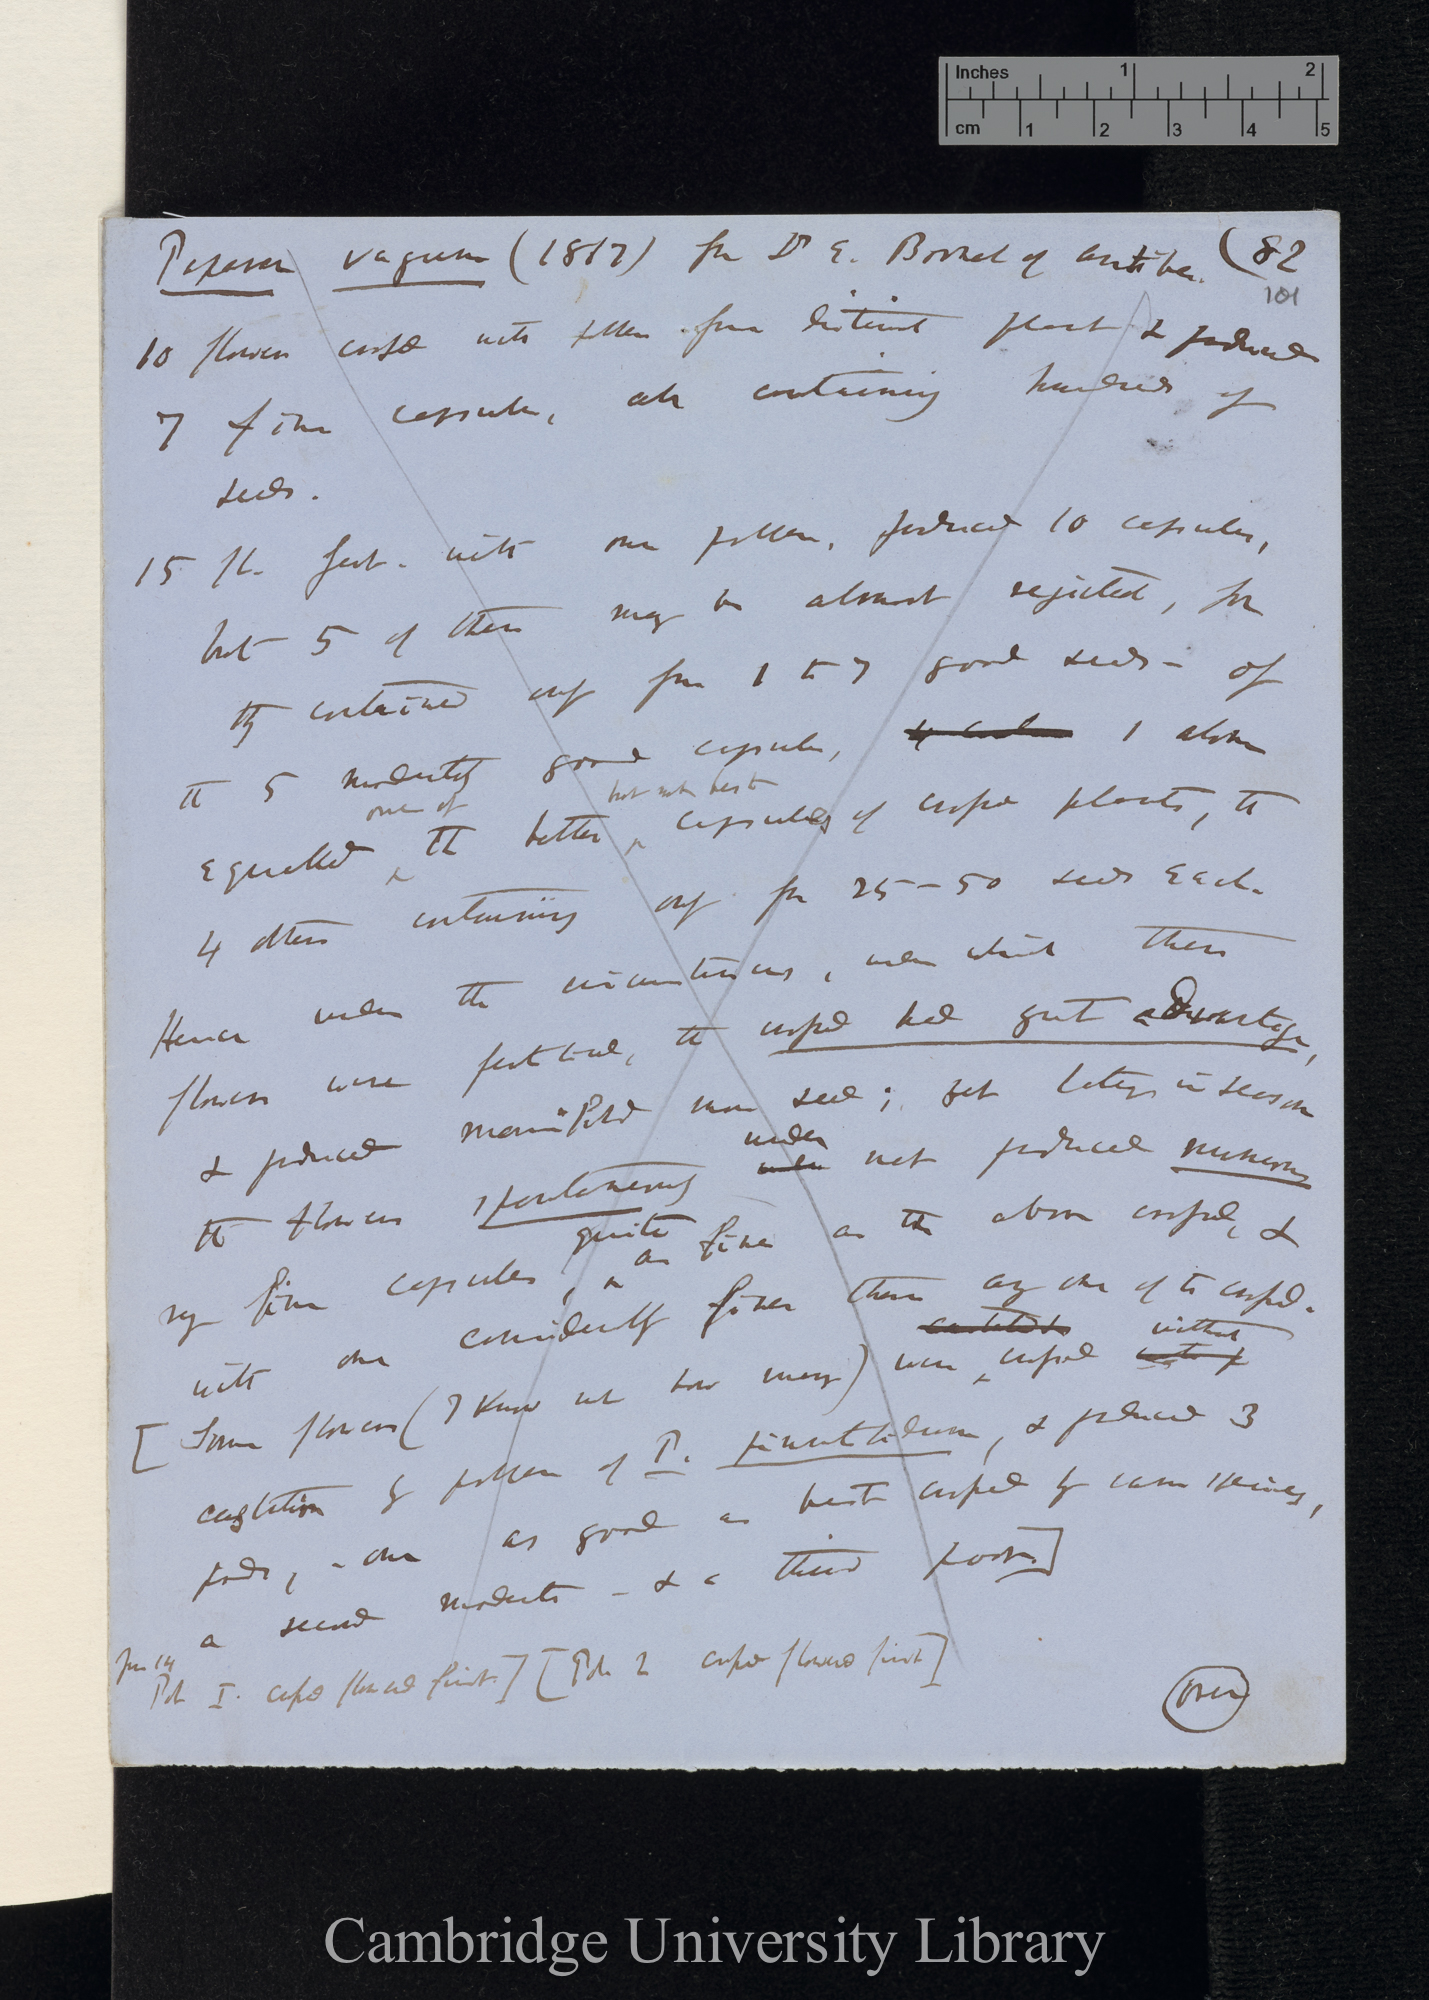 Inches 1 2
cm 1 2 3 4 5
Papaver vagum (1867) from Dr E. Bornet of Antibes. (82
101
10 flowers crossed with pollen from distinct plant & produced
7 fine capsules, all containing hundreds of
seeds.
15 fl. fert. with own pollen, produced 10 capsules,
but 5 of these may be almost rejected, for
they contained only from 1 to 7 good seeds – of
the 5 moderately good capsules, 1 alone
one of but not best
equalled the better capsules of crossed plants, the
4 others containing only from 25–50 seeds each.
Hence under the circumstances, under which these
flowers were fertilised, the crossed had great advantage,
& produced manifold more seed; yet later in season
the flowers spontaneously under net produced numerous
very fine capsules, quite as fine as the above crossed, &
with one considerably finer than any one of the crossed.
[Some flowers (I know not how many) were crossed without
castration by pollen of P. , & produced 3
pods, – one as good as best crossed by same species,
a second moderate – & a third poor.]
Jun 14
Pot I. crossed flowered first.] [Pot 2 crossed flowered first]
over
Cambridge University Library